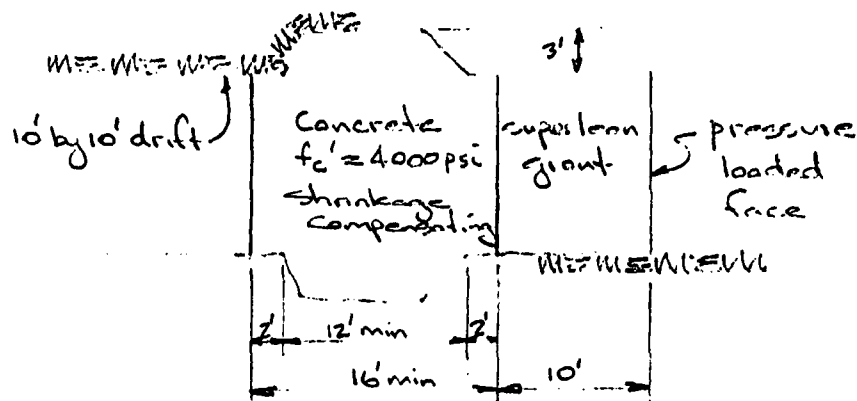 3'
10' by 10' drift
Concrete
fc' = 4000 psi
Shrinkage
compensating
superlean
grout
pressure
loaded
face
2'
12' min
2'
16' min
10'